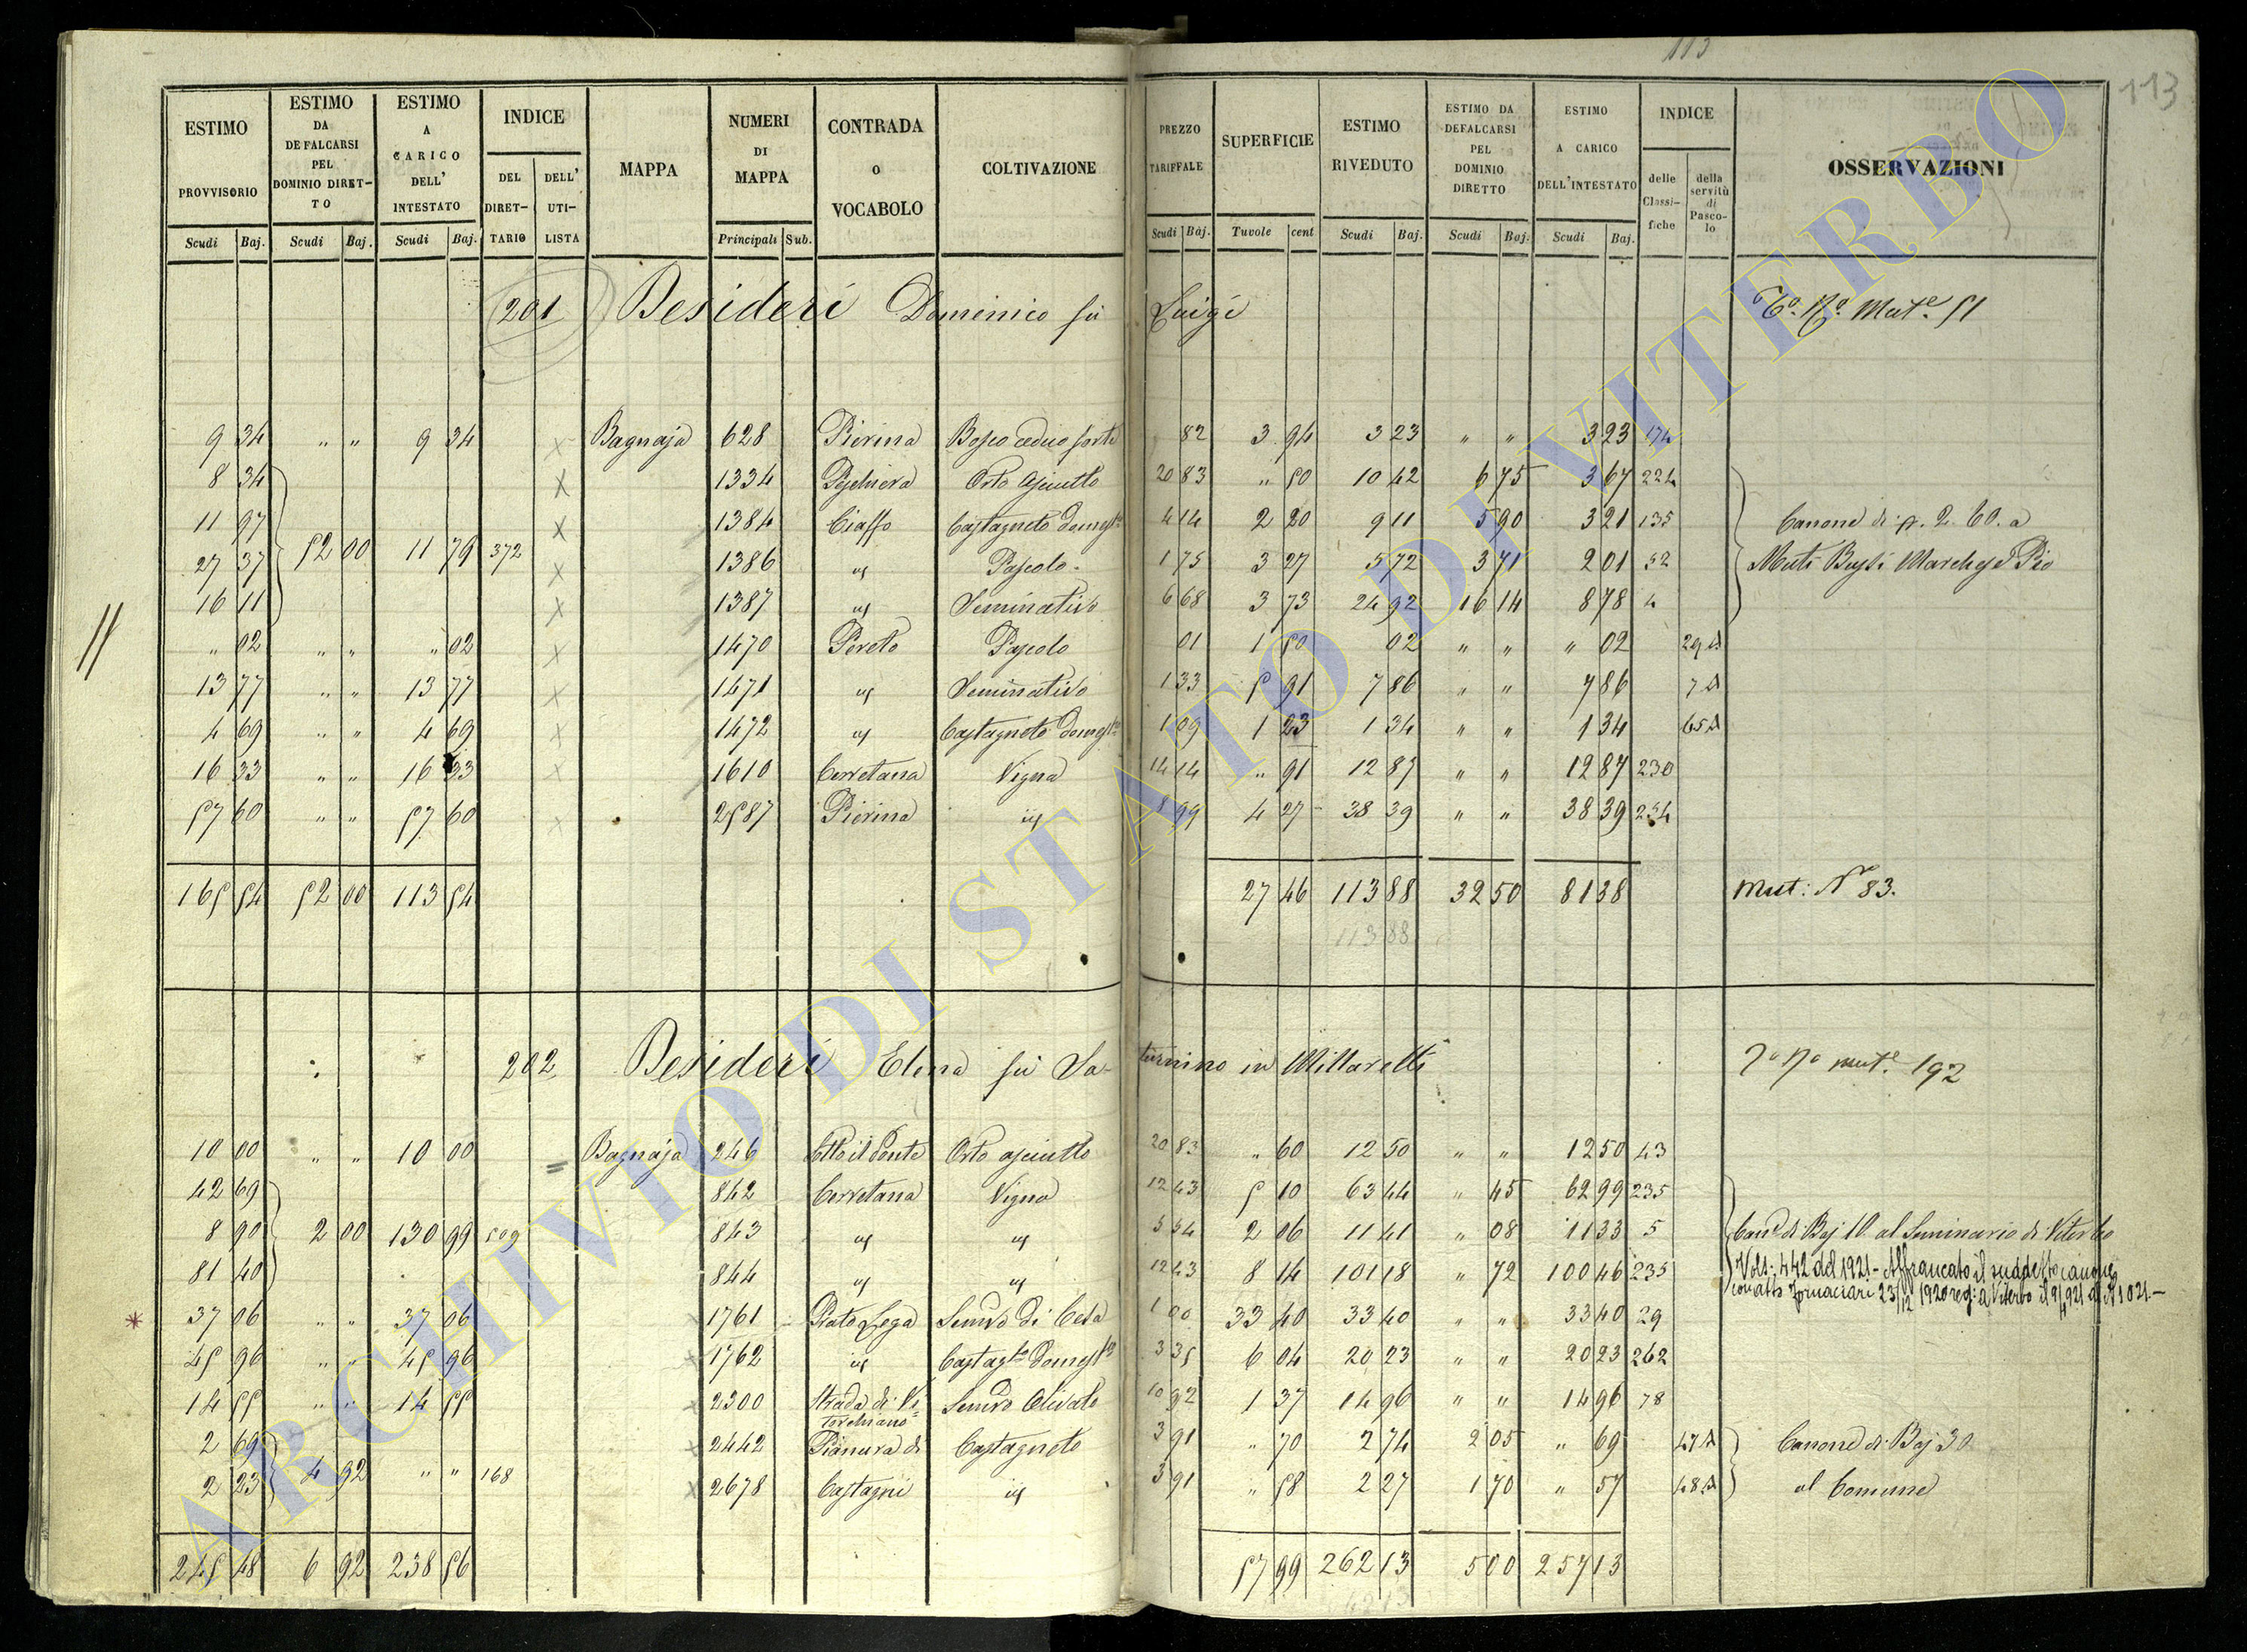 113
113
ESTIMO PROVVISORIO | ESTIMO DA DEFALCARSI PEL DOMINIO DIRETTO | ESTIMO A CARICO DELL' INTESTATO | INDICE DEL DIRETTARIO | DELL' UTILISTA | MAPPA | NUMERI DI MAPPA | CONTRADA O VOCABOLO | COLTIVAZIONE | PREZZO TARIFFALE | SUPERFICIE | ESTIMO RIVEDUTO | ESTIMO DA DEFALCARSI PEL DOMINIO DIRETTO | ESTIMO A CARICO DELL'INTESTATO | INDICE delle Classifiche | della servitù di Pascolo | OSSERVAZIONI
Scudi Baj. | Scudi Baj. | Scudi Baj. | Principali Sub. | Scudi Baj. | Tavole cent | Scudi Baj. | Scudi Baj. | Scudi Baj.
201 Desideri Domenico fu Luigi Mut.e 51
9 34 " " 9 34 Bagnaja 628 Pierina Bosco ceduo forte 82 3 94 3 23 " " 3 23 174
8 34 1334 Peschiera Orto asciutto 20 83 " 50 10 42 6 75 3 67 224
11 97 1384 Ciaffo Castagneto domest.o 4 14 2 20 9 11 5 90 3 21 135 Canone di p. 2. 60. a
27 37 52 00 11 79 372 1386 id Pascolo 1 75 3 27 5 72 3 71 2 01 52 Muti Bussi Marchese Pio
16 11 1387 id Seminativo 6 68 3 73 24 92 16 14 8 78 4
" 02 " " " 02 1470 Pereto Pascolo 01 1 50 02 " " " 02 29 A
13 77 " " 13 77 1471 id Seminativo 1 33 5 91 7 86 " " 7 86 7 A
4 69 " " 4 69 1472 id Castagneto domest.o 1 09 1 23 1 34 " " 1 34 65 A
16 33 " " 16 33 1610 Cerretana Vigna 14 14 " 91 12 87 " " 12 87 230
57 60 " " 57 60 2587 Pierina id 8 99 4 27 38 39 " " 38 39 234
165 54 52 00 113 54 27 46 113 88 32 50 81 38 Mut: N 83.
113 88
202 Desideri Elena fu Saturnino in Millaretti mut.e 192
10 00 " " 10 00 Bagnaja 246 Sotto il Ponte Orto asciutto 20 83 " 60 12 50 " " 12 50 43
42 69 842 Cerretana Vigna 12 43 5 10 63 44 " 45 62 99 235
8 90 2 00 130 99 509 843 id id 5 54 2 06 11 41 " 08 11 33 5 Can.e di Baj 10. al Seminario di Viterbo
81 40 844 id id 12 43 8 14 101 18 " 72 100 46 235 Volt: 442 del 1921 - Affrancato il suddetto canone
con atto Fornaciari 23/12 1920 reg: a Viterbo il
37 06 " " 37 06 1761 Prato Lega Semvo di Cesa 1 00 33 40 33 40 " " 33 40 29
45 96 " " 45 96 1762 id Castag.to domest.o 3 35 6 04 20 23 " " 20 23 262
14 55 " " 14 55 2300 Strada di Vitorchiano Semvo Olivato 10 92 1 37 14 96 " " 14 96 78
2 69 2442 Pianura di Castagneto 3 91 " 70 2 74 2 05 " 69 47 A Canone di Baj 30
2 23 4 92 " " 168 2678 Castagni id 3 91 " 58 2 27 1 70 " 57 48 A al Comune
245 48 6 92 238 56 57 99 262 13 5 00 257 13
ARCHIVIO DI STATO DI VITERBO